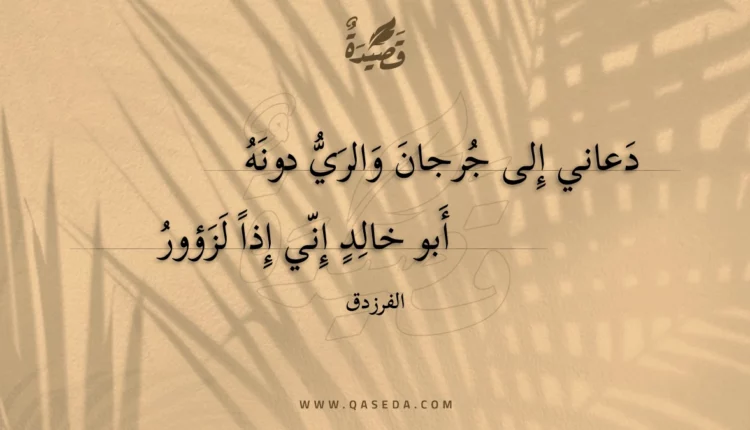 قَصِيْدَةٌ
دَعاني إِلى جُرجانَ وَالرَيُّ دونَهُ
أَبو خالِدٍ إِنّي إِذاً لَزَؤورُ
الفرزدق
WWW.QASEDA.COM